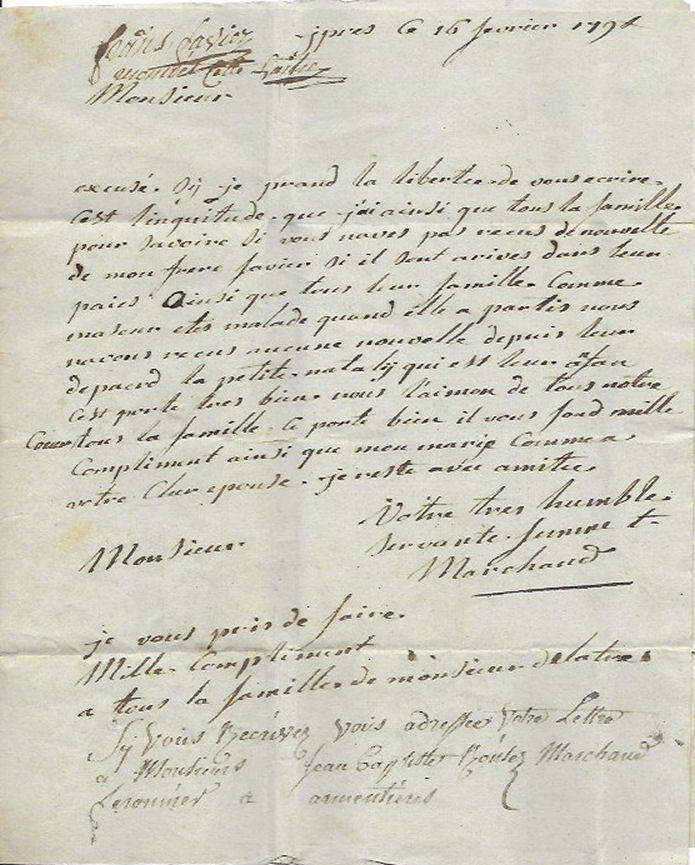 francis Savier ypres le 16 fevrier 179
cette
Monsieur
excusé. Sy je prand la libertee de vous ecrire.
C'est l'inquitude. que j'ai ainsi que tous la famille.
pour savoire si vous naves pas recus de nouvelle
de mon frere Savier si il sont arives dans leur
paies Ainsi que tous leur famille. Comme.
masœur etes malade quand elle a partis nous
navons recus aucune nouvelle depuis leur
depard la petite. natalij qui est leur anfan
C'est porte tres bien. nous l'aimon de tous notre
Cœur tous la famille. Ce porte bien il vous fond mille
Compliment ainsi que mon marie Comme a.
votre Cher epouse. je reste avec amitie.
Votre tres humble.
Monsieur servante. femme t-
Marchand
je vous pris de faire.
Mille. Compliment
a tous la famille. de monsieur delatre.
Sy Vous Recrivez vous adresse votre Lettre
a Monsieur Jean Baptiste Marchand
a armentières